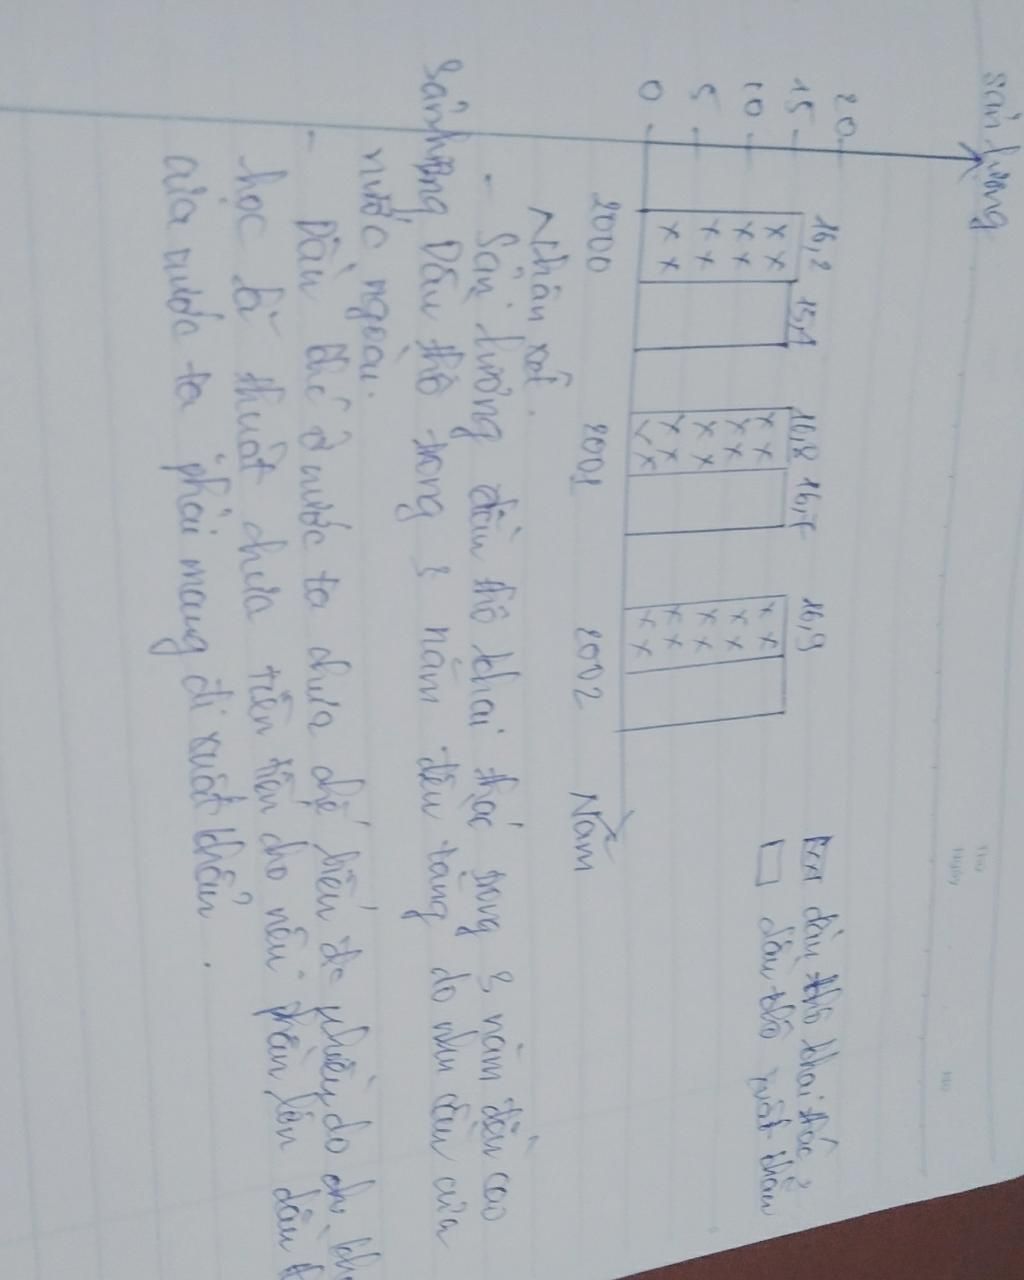 Sản lượng
20
15
10
5
0
16,2 15,4 16,8 16,7 16,9
2000 2001 2002 Năm
dầu thô khai thác
dầu thô xuất khẩu
Nhận xét.
- Sản lượng dầu thô khai thác trong 3 năm đều cao
Sản lượng Dầu thô trong 3 năm đều tăng do nhu cầu của
nước ngoài.
- Dầu thô ở nước ta chưa chế biến đc nhiều do
học kĩ thuật chưa tiên tiến cho nên phần lớn dầu
của nước ta phải mang đi xuất khẩu.